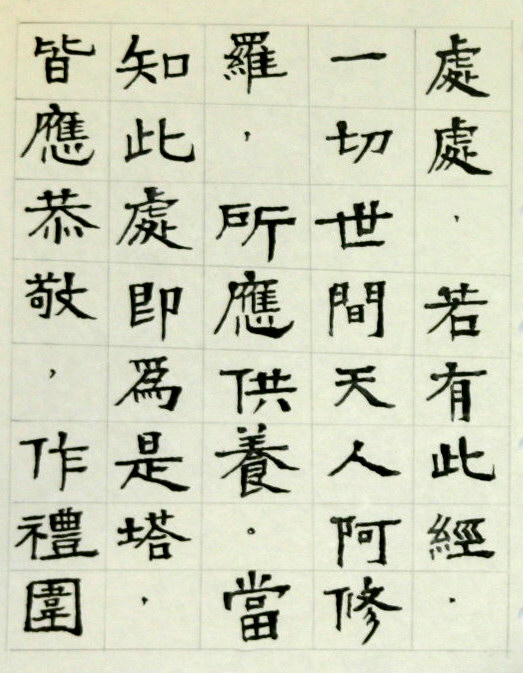 處處，若有此經．
一切世間天人阿修
羅，所應供養。當
知此處即為是塔，
皆應恭敬，作禮圍